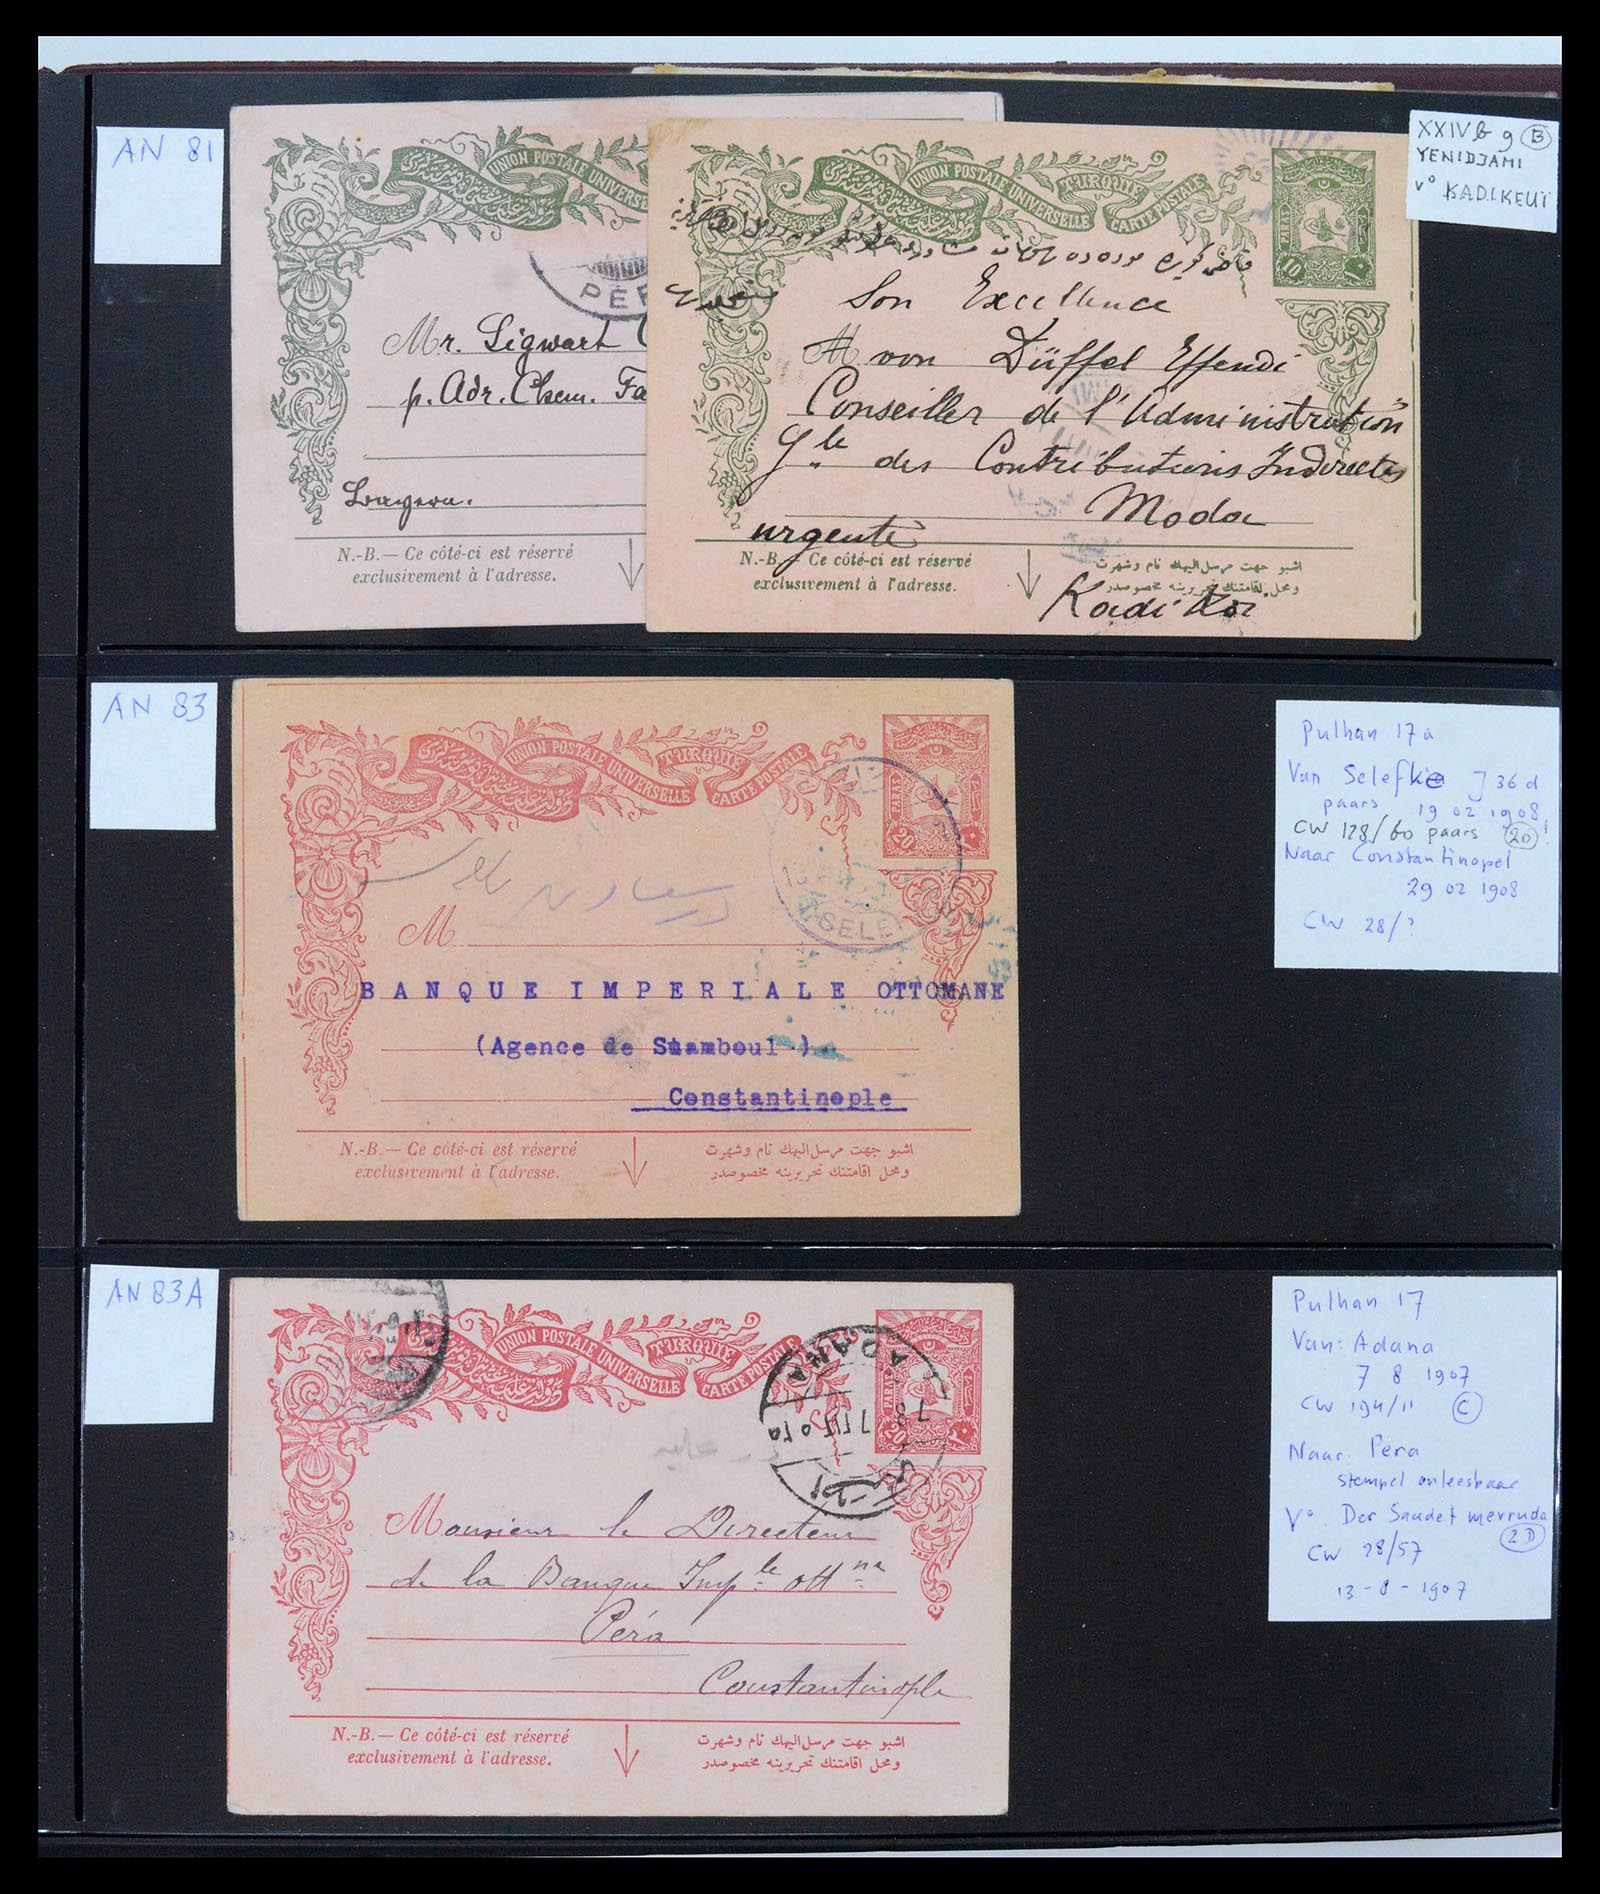 AN 81
UNION POSTALE UNIVERSE
PÉR
Mr. Sigwart
p. Adr. Chem. Fa
N.-B.— Ce côté-ci est réservé
exclusivement à l'adresse.
XXIV b 9 B
YENIDJAMI
v° KADIKEUI
UNION POSTALE UNIVERSELLE
TURQUIE
CARTE POSTALE
PARAS
10 ١٠
Son Excellence
M von Düffel Effendi
Conseiller de l'Administration
Gle des Contributions Indirectes
Moda
urgente
N.-B. Ce côté-ci est réservé
exclusivement à l'adresse.
اشبو جهت مرسل اليهك نام وشهرت
ومحل اقامتنك تحريرينه مخصوصدر
Kadi Koi
AN 83
UNION POSTALE UNIVERSELLE
TURQUIE
CARTE POSTALE
PARAS
20 ٢٠
SELEF
M
BANQUE IMPERIALE OTTOMANE
(Agence de Stamboul )
Constantinople
N.-B.— Ce côté-ci est réservé
exclusivement à l'adresse.
اشبو جهت مرسل اليهك نام وشهرت
ومحل اقامتنك تحريرينه مخصوصدر
Pulhan 17a
Van Selefke J 36 d
paars 19 02 1908
CW 128/60 paars 20 !
Naar Constantinopel
29 02 1908
CW 28/?
AN 83A
UNION POSTALE UNIVERSELLE
TURQUIE
CARTE POSTALE
PARAS
20 ٢٠
ADANA
7 8
Monsieur le Directeur
de la Banque Imple ottne
Péra
Constantinople
N.-B.— Ce côté-ci est réservé
exclusivement à l'adresse.
اشبو جهت مرسل اليهك نام وشهرت
ومحل اقامتنك تحريرينه مخصوصدر
Pulhan 17
Van: Adana
7 8 1907
CW 194/11 C
Naar: Pera
stempel onleesbaar
V° Der Saadet mevruda
CW 28/57 2D
13-8-1907